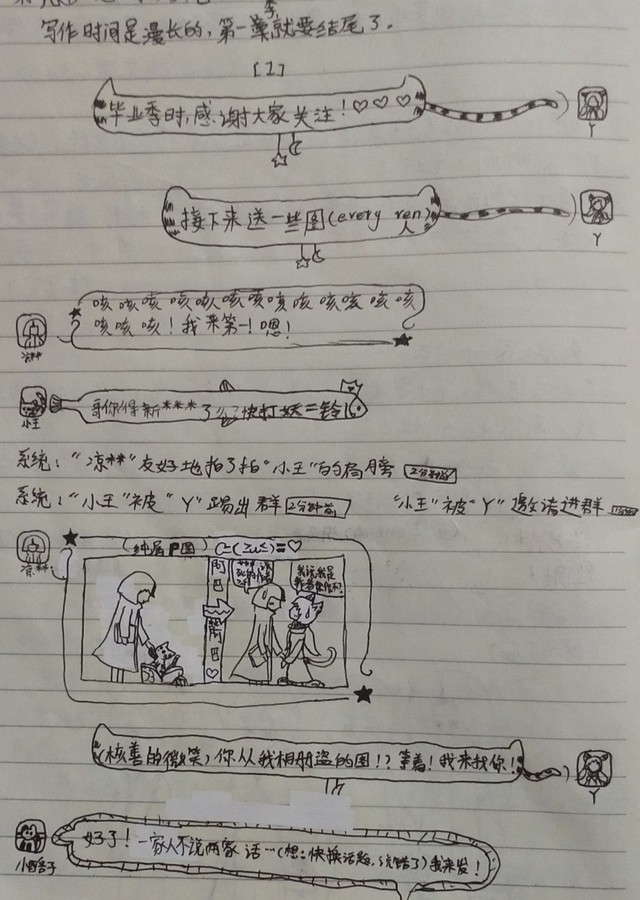 写作时间是漫长的,第一季就要结尾了.
[1]
毕业季时,感谢大家关注!♡♡♡
Y
接下来送一些图(every ren)
人
Y
咳咳咳咳咳咳咳咳咳咳咳咳咳
咳咳咳!我来第一!嗯!
凉**
哥你得新***了么?快打妖二铃
小王
系统:“凉**”友好地拍了拍“小王”的肩膀 2分钟前
系统:“小王”被“Y”踢出群 2分钟前 “小王”被“Y”邀请进群
纯属P图
凉**
(核善的微笑)你从我相册盗的图!?等着!我来找你!
Y
好了!一家人不说两家话…(想:快换话题,说错了)我来发!